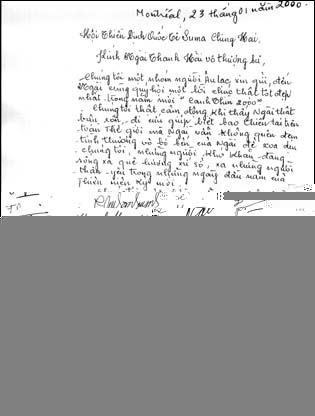 Montréal, 23 tháng 01 năm 2000.
Hội Thiền Định Quốc Tế Suma Ching Hai.
Kính Ngài Thanh Hải vô thượng sư,
Chúng tôi một nhóm người Aulac xin gửi đến
Ngài cùng quý hội một lời chúc thật tốt đẹp
nhất trong năm mới "Canh Thìn 2000"
Chúng tôi thật cảm động khi thấy Ngài thật
bận rộn, đi cứu giúp biết bao thiên tai trên
toàn Thế giới mà Ngài vẫn không quên đem
tình thương vô bờ bến của Ngài để xoa dịu
chúng tôi, những người khó khăn đang
sống xa quê hương xứ sở, xa những người
thân yêu trong những ngày đầu năm của
Thiên niên kỷ mới.